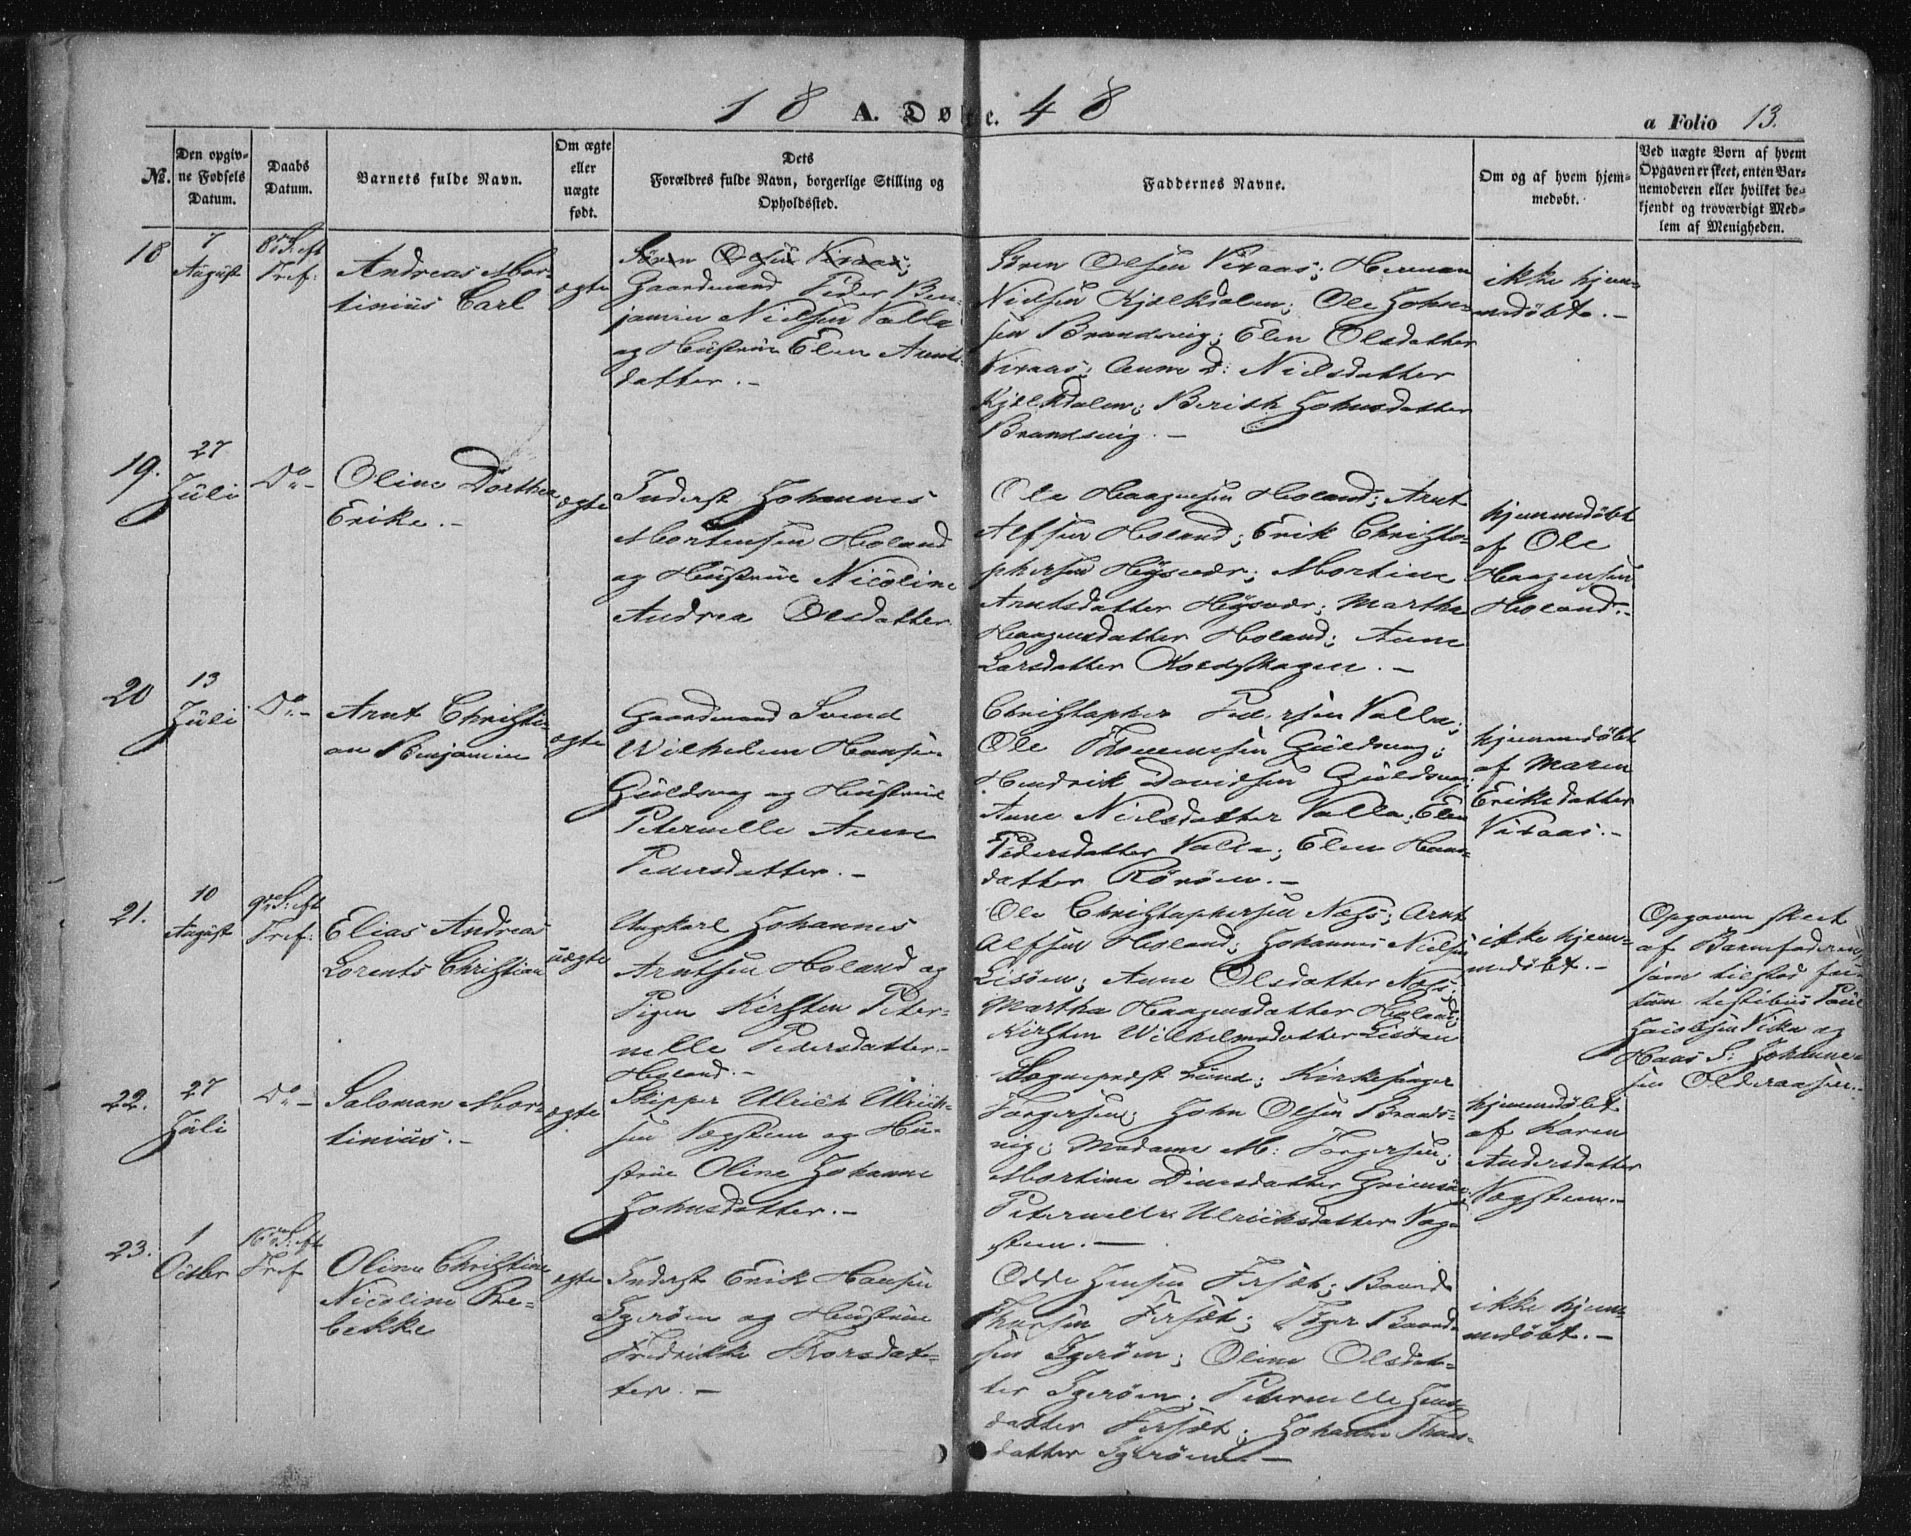 18 A. Døbte. 48
a Folio 13.
No.
Den opgiv-
ne Fødsels
Datum.
Daabs
Datum.
Barnets fulde Navn.
Om ægte
eller
uægte
født.
Dets
Forældres fulde Navn, borgerlige Stilling og
Opholdssted.
Faddernes Navne.
Om og af hvem hjem-
medøbt.
Ved uægte Børn af hvem
Opgaven er skeet, enten Bar-
nemoderen eller hvilket be-
kjendt og troværdigt Med-
lem af Menigheden.
18
7
August
8de S. eft
Tref:
Andreas Mor-
tinius Carl
ægte
Sören Olsen Viraas;
Gaardmand Peder Ben-
jamin Nielsen Valla
og Hustrue Elen Arnts-
datter. -
Sören Olsen Viraas; Herman
Nielsen Kjælkdalen; Ole John-
sen Brandsvig; Elen Olsdatter
Viraas; Anne D: Nielsdatter
Kjælkdalen; Berith Johnsdatter
Brandsvig. -
ikke hjem-
medøbt. -
19.
27
Juli
Do -
Oline Dorthea
Erike. -
ægte
Inderst Johannes
Mortensen Holand
og Hustrue Nicoline
Andrea Olsdatter
Ole Haagensen Holand; Arnt
Alfsen Holand; Erik Christo-
phersen Hysvær; Mortine
Arntsdatter Hysvær; Martha
Haagensdatter Holand; Anne
Larsdatter
hjemmedøbt
af Ole
Haagensen
Holand. -
20
13
Juli
Do -
Arnt Christi-
an Benjamin
ægte
Gaardmand Svend
Wilhelm Hansen
Guldsvag og Hustrue
Peternelle Anne
Pedersdatter. -
Christopher Pedersen Valla;
Ole Thommesen Guldsvag;
Hendrik Davidsen Guldsvag;
Anne Nielsdatter Valla; Elen
Pedersdatter Valla; Elen Hans-
datter Rörøen. -
hjemmedøbt
af Maren
Eriksdatter
Viraas. -
21.
10
August
9de S: eft
Tref:
Elias Andreas
Lorents Christian
uægte
Ungkarl Johannes
Arntsen Holand og
Pigen Kirsten Peter-
nelle Pedersdatter
Holand. -
Ole Christophersen Næss; Arnt
Alfsen Holand; Johannes Nielsen
Lisöen; Anne Olsdatter Næss;
Martha Haagensdatter Holand;
Kirsten Wilhelmsdatter Lisöen
ikke hjem-
medøbt. -
Opgaven skeet
af Barnefaderen,
som tilstod
testibus Paul
Jacobsen og
Haas S: Johanne-
sen
22.
27
Juli
Do -
Saloman Mor-
tinius. -
ægte
Skipper Ulrich Ulrich-
sen Vægsteen og Hu-
strue Oline Johanne
Johnsdatter. -
Sognepræst Lund; Kirkesanger
Torgersen; John Olsen Brands-
vig; Madame M: Torgersen;
Mortine Dinesdatter
Peternelle Ulrichsdatter Væg-
steen. -
hjemmedøbt
af Karen
Andersdatter
Vægsteen. -
23.
1
Octbr
16de S: eft
Tref
Oline Christine
Nicoline Re-
bekke
ægte
Inderst Erik Hansen
Igerøen og Hustrue
Fredrikke Thorsdat-
ter. -
Odde Jensen Forsæt; Baard
Thorsen Forsæt; Baard-
sen Igerøen; Oline Olsdat-
ter Igerøen; Peternelle Jens-
datter Forsæt; Johanne Thors-
datter Igerøen -
ikke hjem-
medøbt. -